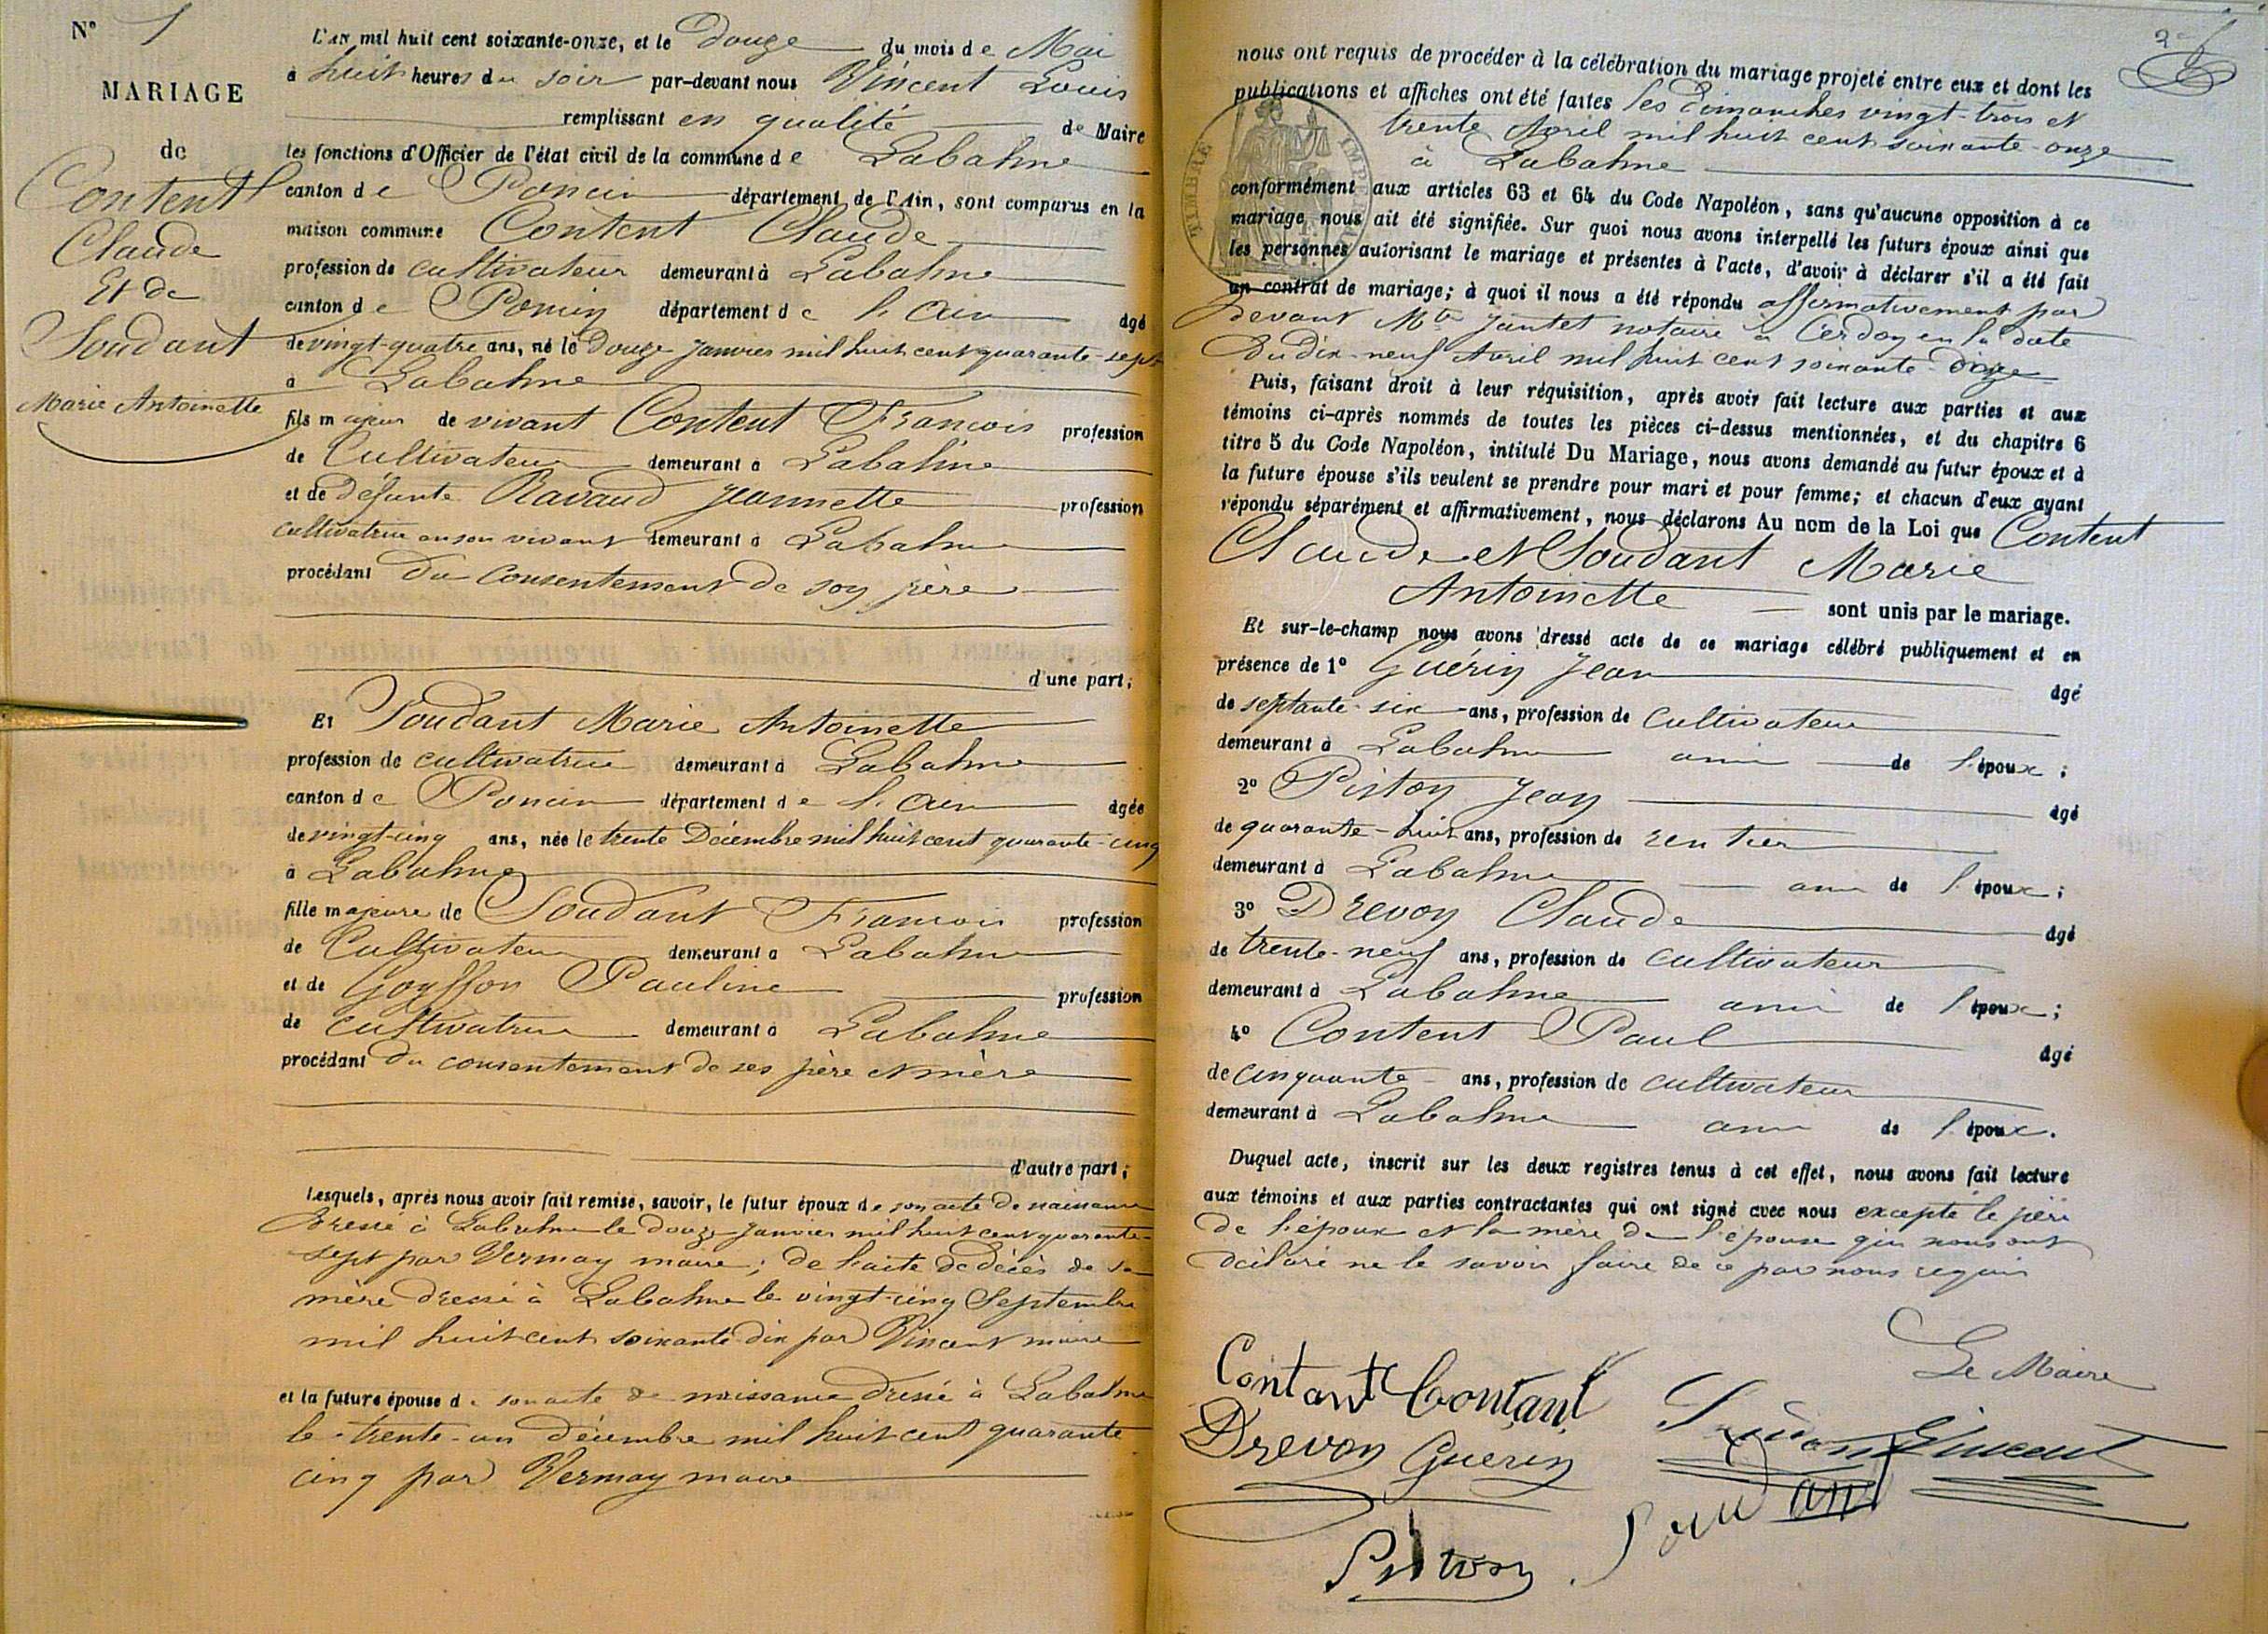 N° 1
MARIAGE
de
Content
Claude
Et de
Soudant
Marie Antoinette
L'an mil huit cent soixante-onze, et le douze du mois de Mai
à huit heures du soir par-devant nous Vincent Louis
remplissant en qualité de Maire
les fonctions d'Officier de l'état civil de la commune de Labalme
canton de Poncin département de l'Ain, sont comparus en la
maison commune Content Claude
profession de cultivateur demeurant à Labalme
canton de Poncin département de l'Ain âgé
de vingt-quatre ans, né le Douze Janvier mil huit cent quarante-sept
à Labalme
fils majeur de vivant Content François profession
de Cultivateur demeurant à Labalme
et de défunte Ravaud Jeannette profession
cultivatrice en son vivant demeurant à Labalme
procédant du consentement de son père
d'une part;
Et Soudant Marie Antoinette
profession de cultivatrice demeurant à Labalme
canton de Poncin département de l'Ain âgée
de vingt-cinq ans, née le trente Décembre mil huit cent quarante-cinq
à Labalme
fille majeure de Soudant François profession
de Cultivateur demeurant à Labalme
et de Gouffon Pauline profession
de cultivatrice demeurant à Labalme
procédant du consentement de ses père et mère
d'autre part;
Lesquels, après nous avoir fait remise, savoir, le futur époux de son acte de naissance
dressé à Labalme le douze Janvier mil huit cent quarante-
sept par Vermay maire; de l'acte de décès de sa
mère dressé à Labalme le vingt-cinq Septembre
mil huit cent soixante-dix par Vincent maire
et la future épouse de son acte de naissance dressé à Labalme
le trente-un décembre mil huit cent quarante
cinq par Vermay maire
nous ont requis de procéder à la célébration du mariage projeté entre eux et dont les
publications et affiches ont été faites les dimanches vingt-trois et
trente Avril mil huit cent soixante-onze
à Labalme
TIMBRE IMPE
conformément aux articles 63 et 64 du Code Napoléon, sans qu'aucune opposition à ce
mariage nous ait été signifiée. Sur quoi nous avons interpellé les futurs époux ainsi que
les personnes autorisant le mariage et présentes à l'acte, d'avoir à déclarer s'il a été fait
un contrat de mariage; à quoi il nous a été répondu affirmativement par
devant Mtre Jantet notaire à Cerdon en la date
du dix-neuf Avril mil huit cent soixante-onze
Puis, faisant droit à leur réquisition, après avoir fait lecture aux parties et aux
témoins ci-après nommés de toutes les pièces ci-dessus mentionnées, et du chapitre 6
titre 5 du Code Napoléon, intitulé Du Mariage, nous avons demandé au futur époux et à
la future épouse s'ils veulent se prendre pour mari et pour femme; et chacun d'eux ayant
répondu séparément et affirmativement, nous déclarons Au nom de la Loi que Content
Claude et Soudant Marie
Antoinette sont unis par le mariage.
Et sur-le-champ nous avons dressé acte de ce mariage célébré publiquement et en
présence de 1° Guérin Jean âgé
de septante-six ans, profession de Cultivateur
demeurant à Labalme ami de l'époux;
2° Piston Jean âgé
de quarante-huit ans, profession de rentier
demeurant à Labalme ami de l'époux;
3° Drevon Claude âgé
de trente-neuf ans, profession de cultivateur
demeurant à Labalme ami de l'époux;
4° Content Paul âgé
de cinquante ans, profession de cultivateur
demeurant à Labalme ami de l'époux.
Duquel acte, inscrit sur les deux registres tenus à cet effet, nous avons fait lecture
aux témoins et aux parties contractantes qui ont signé avec nous excepté le père
de l'époux et la mère de l'épouse qui nous ont
déclaré ne le savoir faire de ce par nous requis
Le Maire
Contant Contant
Drevon Guerin Vincent
Soudant
Piston